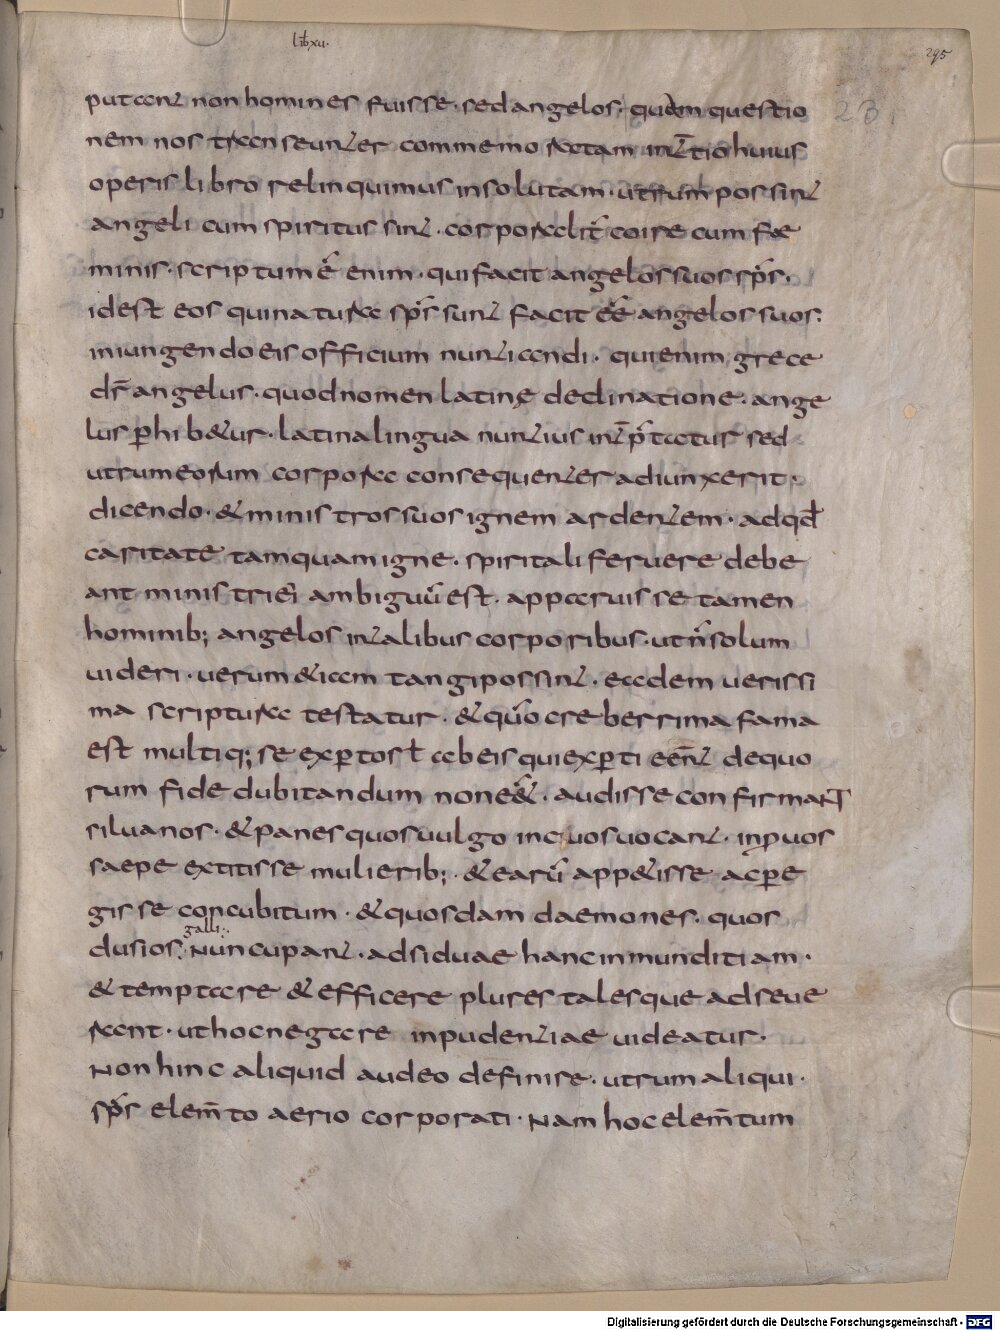 lib. xu.
295
23
putant non homines fuisse. sed angelos. quam questio
nem nos transeunter commemoratam in tertio huius
operis libro relinquimus insolutam. utrum possint
angeli cum spiritus sint. corporalit̄ coire cum fae
minis. scriptum ē enim. qui facit angelos suos sp̄s.
idest eos qui natura sp̄s sunt facit eē angelos suos.
iniungendo eis officium nuntiandi. qui enim grece
dr̄ angelus. quod nomen latinę declinatione. ange
lus ꝑhibetur. latina lingua nuntius int̄p̄tatur sed
utrum eorum corpora consequenter adiunxerit.
dicendo. & ministros suos ignem ardentem. ad qd̄
caritate tamquam igne. spiritali feruere debe
ant ministri ei ambiguū est. apparuisse tamen
hominib; angelos in talibus corporibus. ut n̄ solum
uideri. uerum & iam tangi possint. eadem uerissi
ma scriptura testatur. & qm̄ creberrima fama
est multiq; se exꝑtos ł ab eis qui exꝑti eēnt de quo
rum fide dubitandum non eēt. audisse confirmant
siluanos. & panes quos uulgo incuuos uocant. inꝓuos
saepe extitisse mulierib;. & earū appetisse ac ꝑe
gisse concubitum. & quosdam daemones. quos
galli:
dusios: nuncupant. adsiduae hanc inmunditiam.
& temptare & efficere plures talesque adseue
rant. ut hoc negare inpudentiae uideatur.
Non hinc aliquid audeo definire. utrum aliqui.
sp̄s elem̄to aerio corporati. Nam hoc elem̄tum
Digitalisierung gefördert durch die Deutsche Forschungsgemeinschaft - DFG